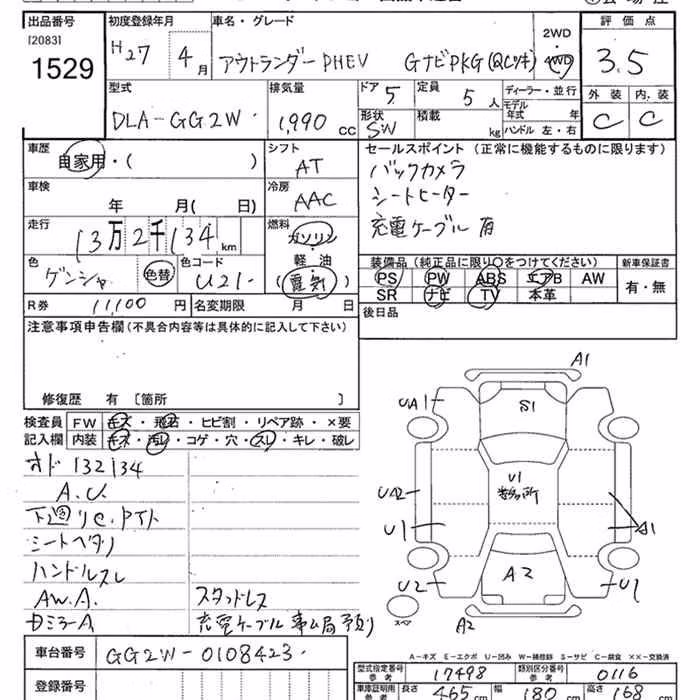 出品番号 初度登録年月 車名・グレード 2WD 評価点
[2083] H27 4月 アウトランダーPHEV GナビPKG(QCツキ) 4WD 3.5
1529
型式 排気量 ドア 5 定員 5人 ディーラー・並行 外装 内装
DLA-GG2W 1,990 cc 形状 SW 積載 kg モデル年式 年 C C
ハンドル 左・右
車歴 シフト セールスポイント (正常に機能するものに限ります)
自家用・( ) AT バックカメラ
車検 冷房 シートヒーター
年 月( 日) AAC 充電ケーブル 有
走行 燃料
13万2千134km ガソリン
軽油
色 色替 色コード (電気) 装備品 (純正品に限り○をつけてください) 新車保証書
ゲンシャ U21- PS PW ABS エアB AW 有・無
R券 11,100円 名変期限 月 日 SR ナビ TV 本革
注意事項申告欄(不具合内容等は具体的に記入して下さい) 後日品
修復歴 有 [箇所 ]
検査員 FW キズ・飛石・ヒビ割・リペア跡・×要
記入欄 内装 キズ・汚レ・コゲ・穴・スレ・キレ・破レ
オド132134
A.U.
下廻りC.Pサト
シートヘタリ
ハンドルスレ
AW.A. スタッドレス
Dミラー A 充電ケーブル 事ム局予カリ
A1
UA1 S1
U1
UA2 数ヶ所
U1 A1
U2 A2 U1
スペア A2
A-キズ E-エクボ U-凹み W-補修跡 S-サビ C-腐食 ××-交換済
車台番号 GG2W-0108423 型式指定番号 参考 17498 類別区分番号 参考 0116
登録番号 車庫証明用 参考 長さ 465cm 幅 180cm 高さ 168cm